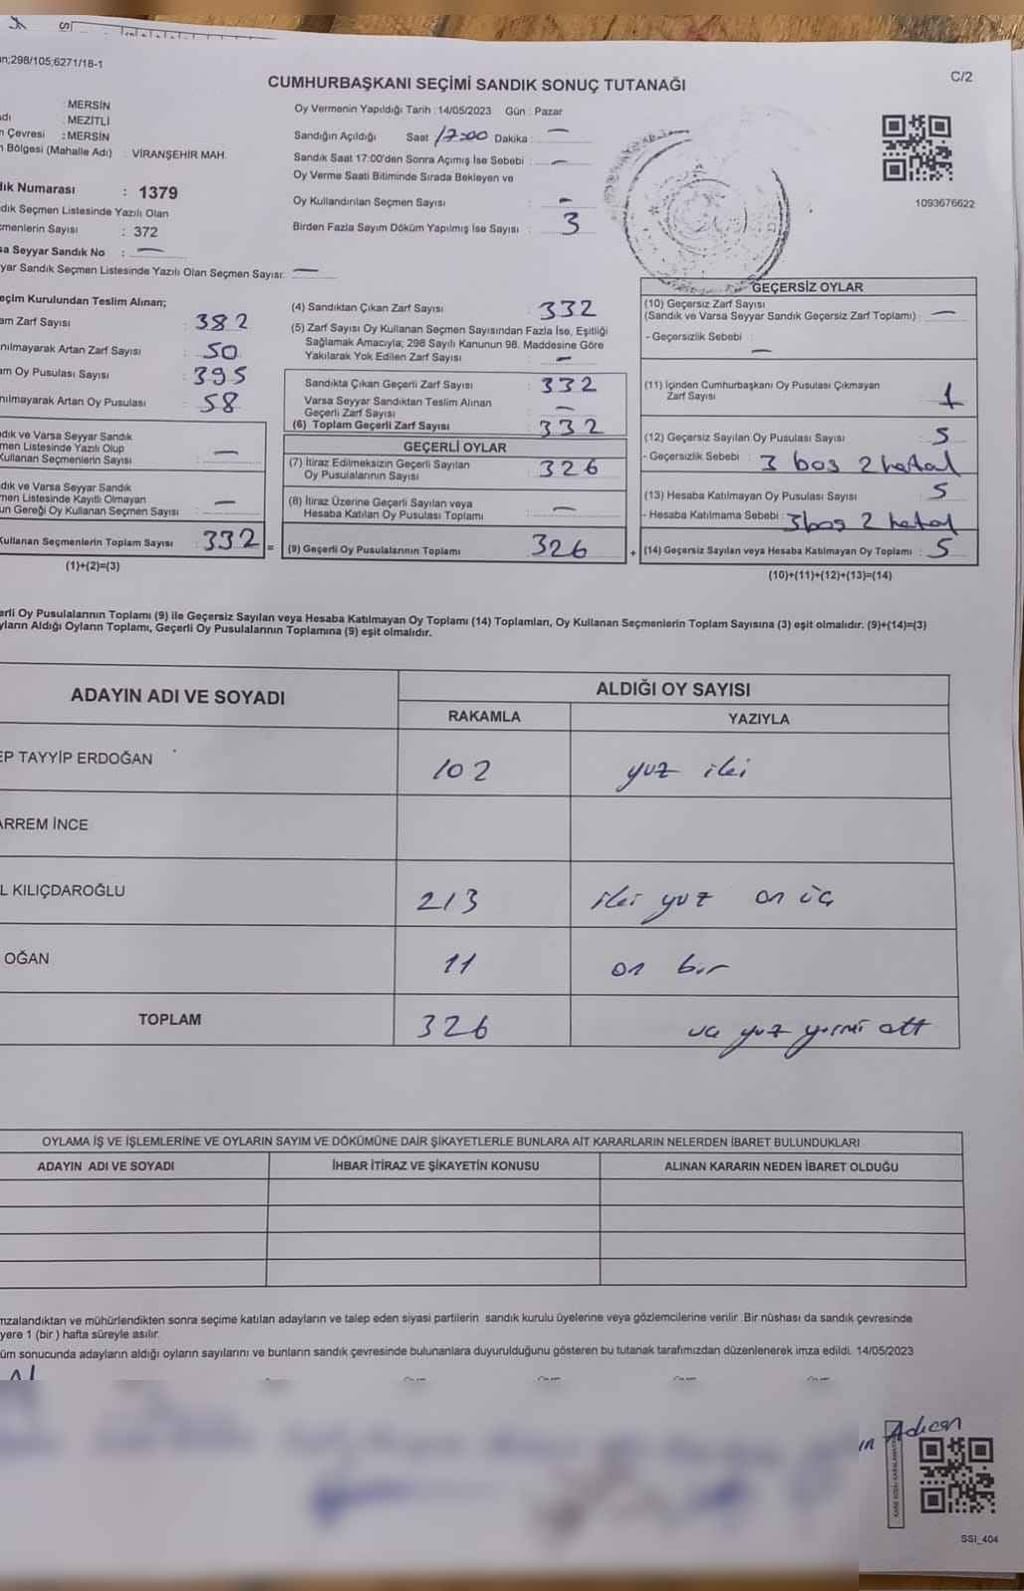 n;298/105;6271/18-1
CUMHURBAŞKANI SEÇİMİ SANDIK SONUÇ TUTANAĞI
C/2
: MERSİN
dı : MEZİTLİ
n Çevresi : MERSİN
n Bölgesi (Mahalle Adı) : VİRANŞEHİR MAH.
dık Numarası : 1379
dık Seçmen Listesinde Yazılı Olan
çmenlerin Sayısı : 372
sa Seyyar Sandık No : —
yar Sandık Seçmen Listesinde Yazılı Olan Seçmen Sayısı: —
Oy Vermenin Yapıldığı Tarih : 14/05/2023 Gün : Pazar
Sandığın Açıldığı Saat 17:00 Dakika : —
Sandık Saat 17:00'den Sonra Açılmış İse Sebebi : —
Oy Verme Saati Bitiminde Sırada Bekleyen ve
Oy Kullandırılan Seçmen Sayısı : —
Birden Fazla Sayım Döküm Yapılmış İse Sayısı : 3
1093676622
eçim Kurulundan Teslim Alınan;
am Zarf Sayısı : 382
nılmayarak Artan Zarf Sayısı : 50
am Oy Pusulası Sayısı : 395
nılmayarak Artan Oy Pusulası : 58
dık ve Varsa Seyyar Sandık
men Listesinde Yazılı Olup
Kullanan Seçmenlerin Sayısı : —
dık ve Varsa Seyyar Sandık
men Listesinde Kayıtlı Olmayan
un Gereği Oy Kullanan Seçmen Sayısı : —
Kullanan Seçmenlerin Toplam Sayısı : 332
(1)+(2)=(3)
(4) Sandıktan Çıkan Zarf Sayısı : 332
(5) Zarf Sayısı Oy Kullanan Seçmen Sayısından Fazla İse, Eşitliği
Sağlamak Amacıyla; 298 Sayılı Kanunun 98. Maddesine Göre
Yakılarak Yok Edilen Zarf Sayısı : —
Sandıkta Çıkan Geçerli Zarf Sayısı : 332
Varsa Seyyar Sandıktan Teslim Alınan
Geçerli Zarf Sayısı : —
(6) Toplam Geçerli Zarf Sayısı : 332
GEÇERLİ OYLAR
(7) İtiraz Edilmeksizin Geçerli Sayılan
Oy Pusulalarının Sayısı : 326
(8) İtiraz Üzerine Geçerli Sayılan veya
Hesaba Katılan Oy Pusulası Toplamı : —
= (9) Geçerli Oy Pusulalarının Toplamı : 326
GEÇERSİZ OYLAR
(10) Geçersiz Zarf Sayısı
(Sandık ve Varsa Seyyar Sandık Geçersiz Zarf Toplamı) : —
- Geçersizlik Sebebi : —
(11) İçinden Cumhurbaşkanı Oy Pusulası Çıkmayan
Zarf Sayısı : 1
(12) Geçersiz Sayılan Oy Pusulası Sayısı : 5
- Geçersizlik Sebebi : 3 bos 2 hatal
(13) Hesaba Katılmayan Oy Pusulası Sayısı : 5
- Hesaba Katılmama Sebebi : 3 bos 2 hatal
+ (14) Geçersiz Sayılan veya Hesaba Katılmayan Oy Toplamı : 5
(10)+(11)+(12)+(13)=(14)
erli Oy Pusulalarının Toplamı (9) ile Geçersiz Sayılan veya Hesaba Katılmayan Oy Toplamı (14) Toplamları, Oy Kullanan Seçmenlerin Toplam Sayısına (3) eşit olmalıdır. (9)+(14)=(3)
yların Aldığı Oyların Toplamı, Geçerli Oy Pusulalarının Toplamına (9) eşit olmalıdır.
ADAYIN ADI VE SOYADI
ALDIĞI OY SAYISI
RAKAMLA YAZIYLA
EP TAYYİP ERDOĞAN 102 yuz iki
ARREM İNCE
L KILIÇDAROĞLU 213 iki yuz on üç
OĞAN 11 on bir
TOPLAM 326 uç yuz yirmi altı
OYLAMA İŞ VE İŞLEMLERİNE VE OYLARIN SAYIM VE DÖKÜMÜNE DAİR ŞİKAYETLERLE BUNLARA AİT KARARLARIN NELERDEN İBARET BULUNDUKLARI
ADAYIN ADI VE SOYADI İHBAR İTİRAZ VE ŞİKAYETİN KONUSU ALINAN KARARIN NEDEN İBARET OLDUĞU
mzalandıktan ve mühürlendikten sonra seçime katılan adayların ve talep eden siyasi partilerin sandık kurulu üyelerine veya gözlemcilerine verilir. Bir nüshası da sandık çevresinde
yere 1 (bir ) hafta süreyle asılır.
üm sonucunda adayların aldığı oyların sayılarını ve bunların sandık çevresinde bulunanlara duyurulduğunu gösteren bu tutanak tarafımızdan düzenlenerek imza edildi. 14/05/2023
SSI_404